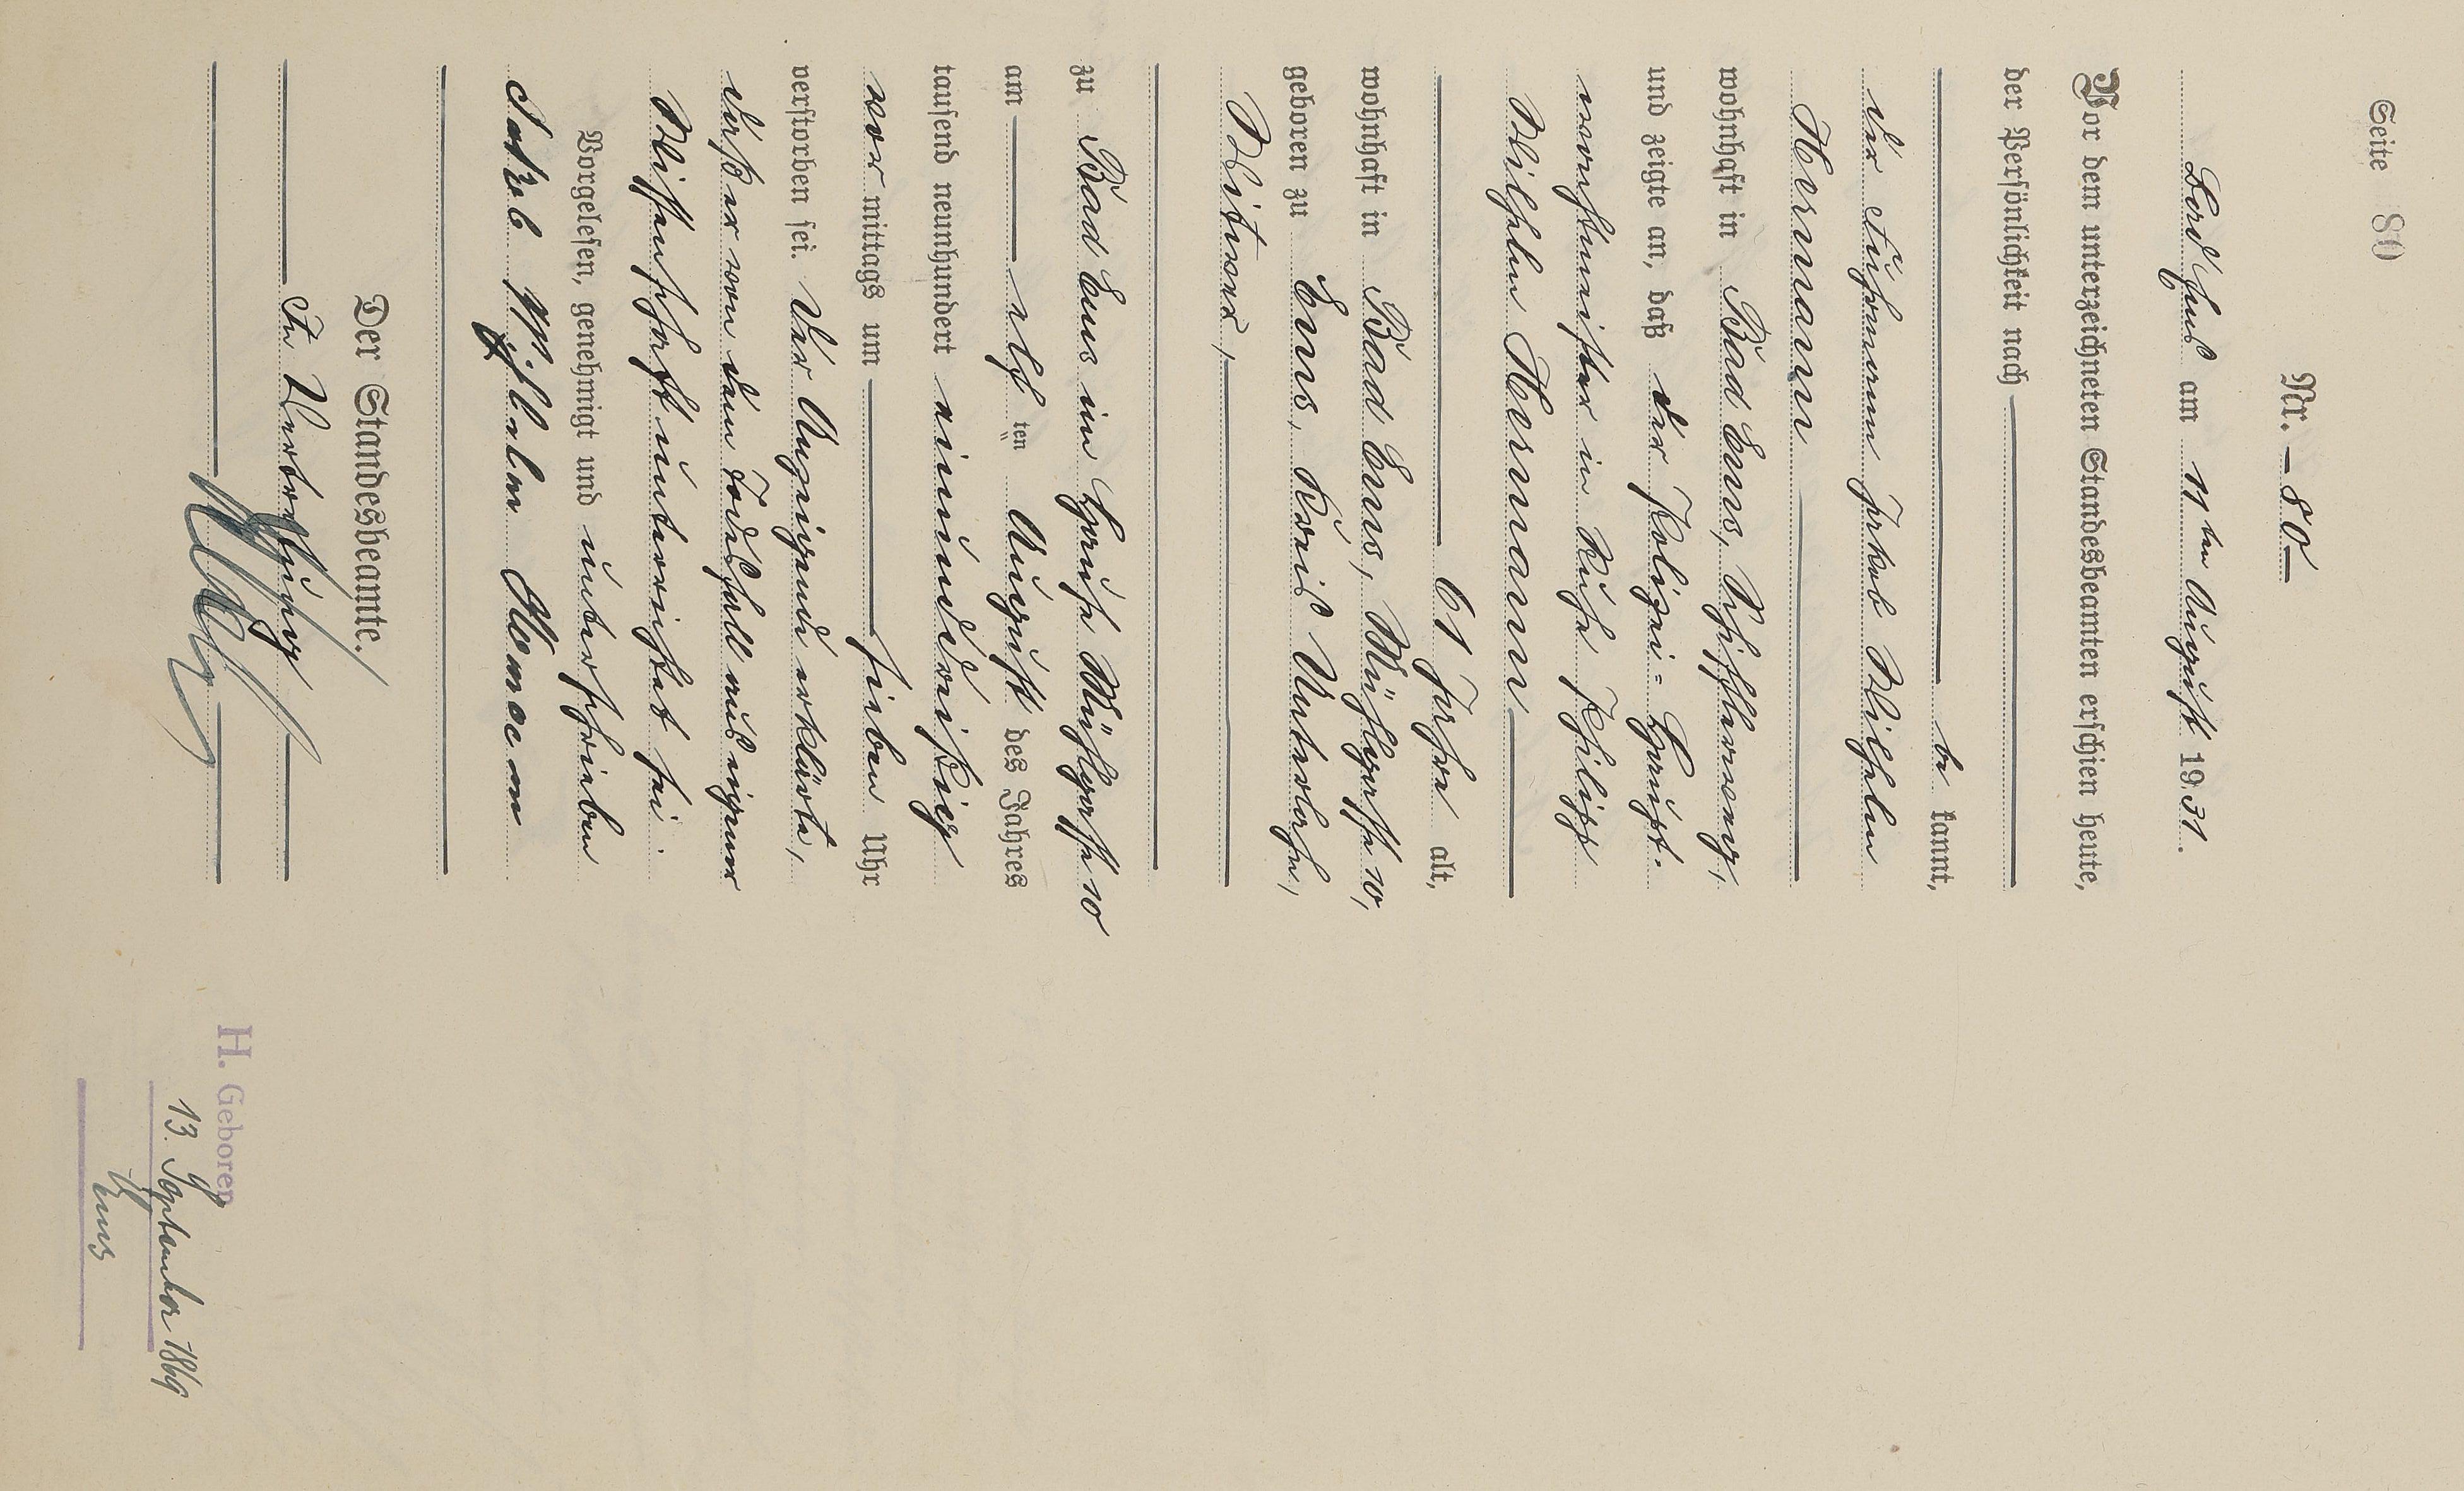 Seite 80
Nr. 80
Bad Ems am 11ten August 1931.
Vor dem unterzeichneten Standesbeamten erschien heute,
der Persönlichkeit nach
be kannt,
der Fuhrmann Jakob Wilhelm
Hermann
wohnhaft in Bad Ems,
und zeigte an, daß der Polizei-Haupt-
wachtmeister in Ruhe Philipp
Wilhelm Hermann
61 Jahre alt,
wohnhaft in Bad Ems, 10,
geboren zu Ems, Kreis Unterlahn,
Witwer,
zu Bad Ems im Hause 10
am elf ten August des Jahres
tausend neunhundert einunddreißig
vor mittags um sieben Uhr
verstorben sei. Der Anzeigende erklärte,
daß er von dem Todesfall aus eigener
Wissenschaft unterrichtet sei.
Vorgelesen, genehmigt und unterschrieben
Jakob Wilhelm Hermann
Der Standesbeamte.
In Vertretung
H. Geboren
13. September 1869
Ems